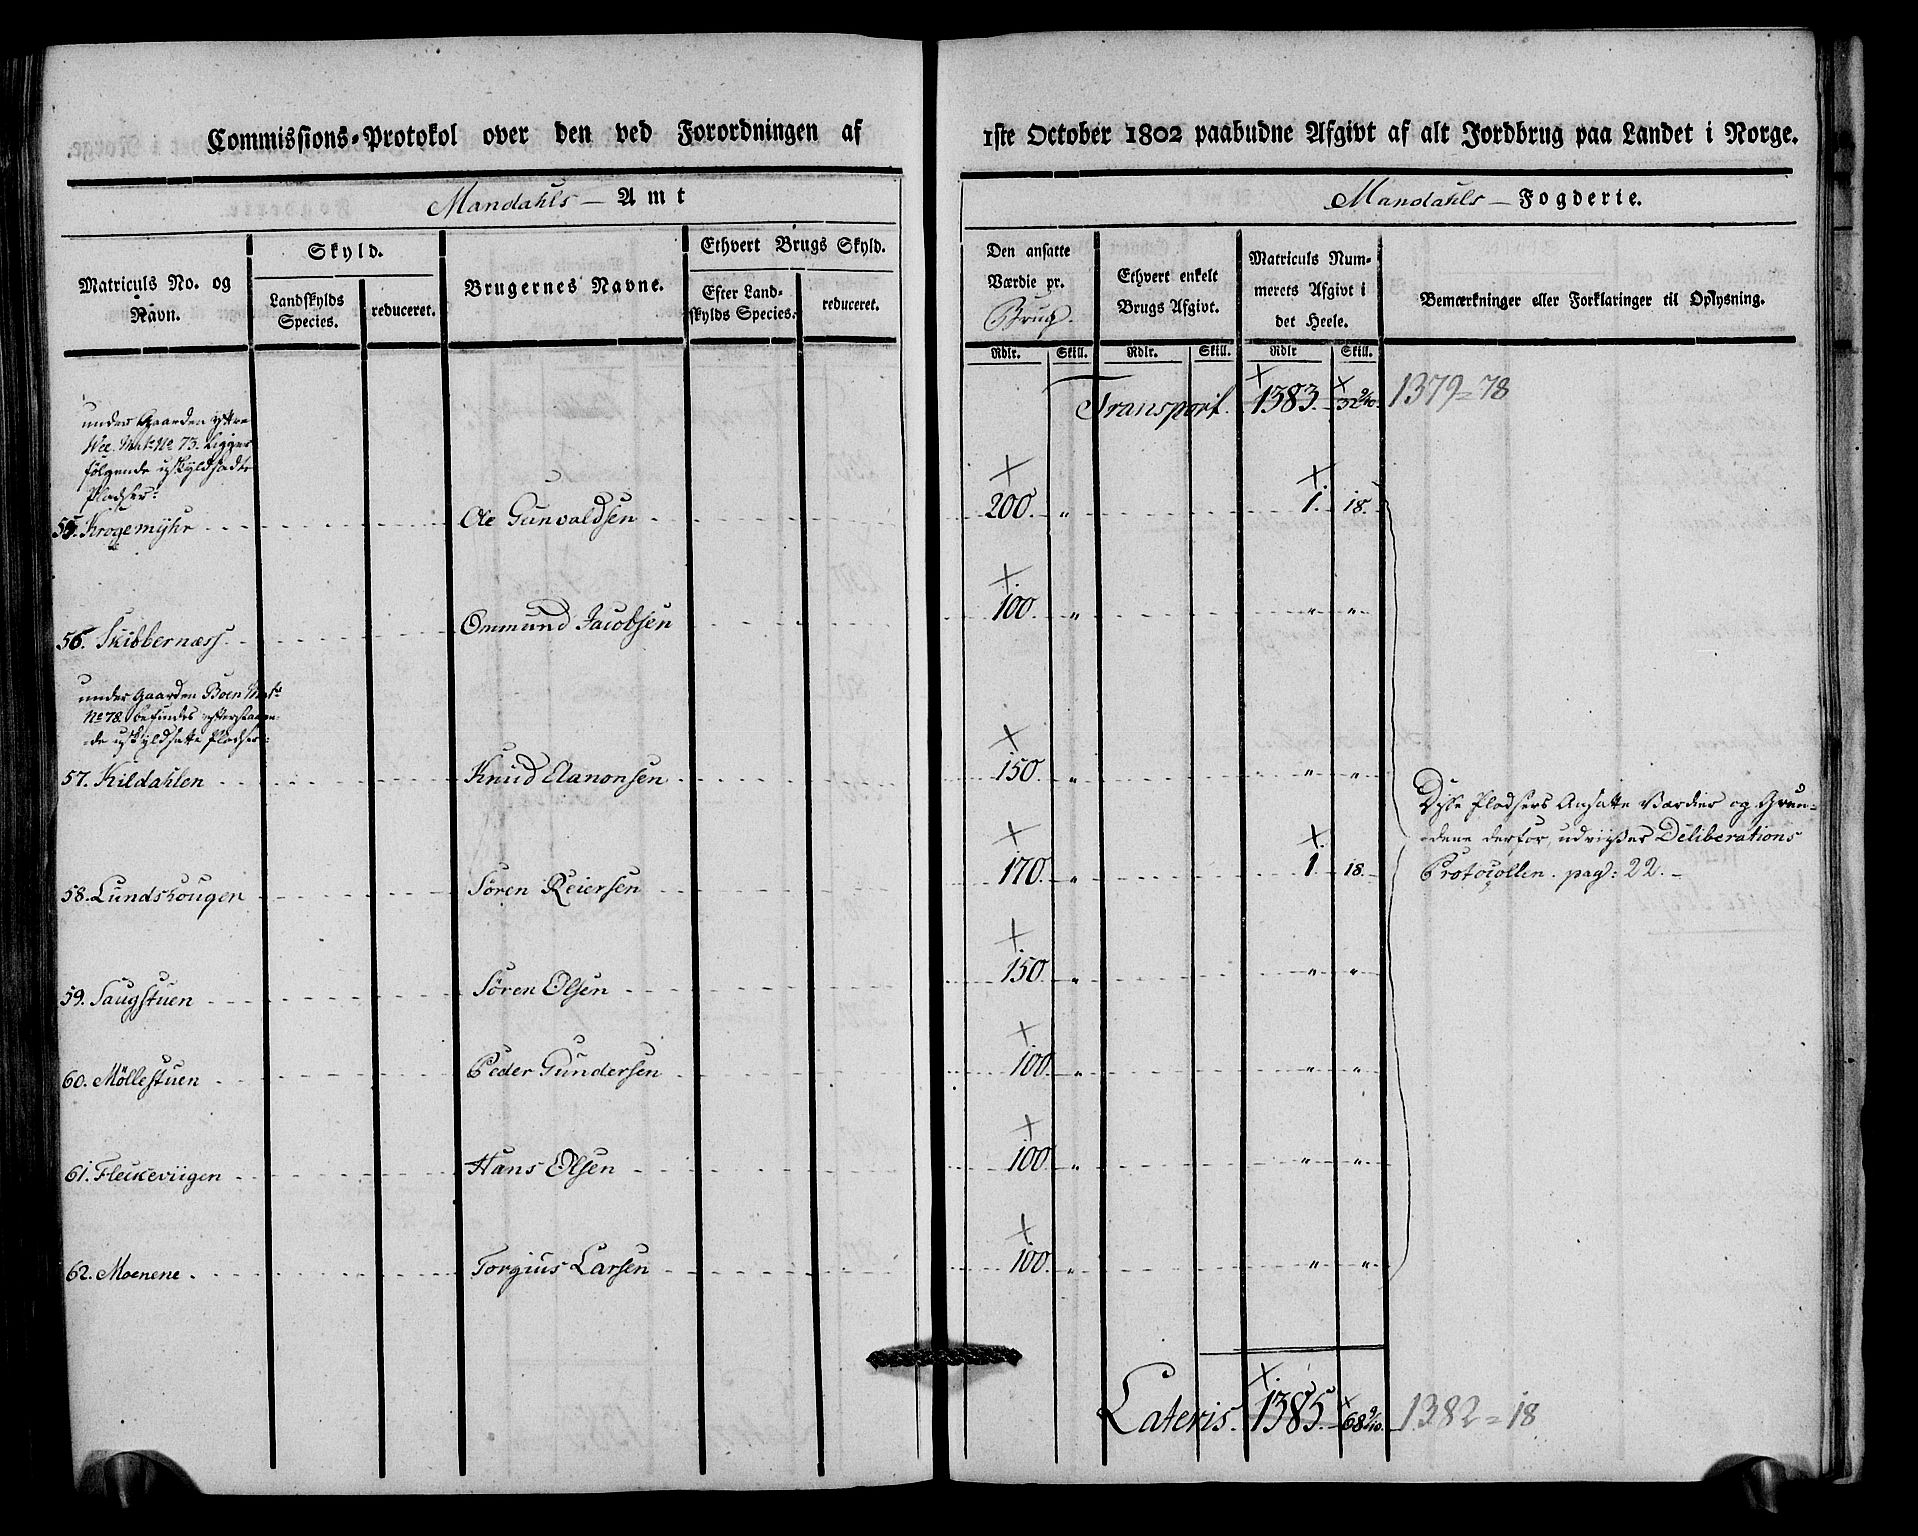 Commissions-Protokol over den ved Forordningen af 1ste October 1802 paabudne Afgivt af alt Jordbrug paa Landet i Norge.
Mandahls Amt
Mandahls Fogderie.
Matriculs No. og Navn.
Skyld.
Landskylds Species.
reduceret.
Brugernes Navne.
Ethvert Brugs Skyld.
Efter Landskylds Species.
reduceret.
Den ansatte Værdie pr. Brug.
Ethvert enkelt Brugs Afgivt.
Matriculs Nummerets Afgivt i det Heele.
Bemærkninger eller Forklaringer til Oplysning.
Rdlr. Skill. Rdlr. Skill. Rdlr Skill.
Transport. 1383. 32 9/10. 1379 = 78
under Gaarden ystre
Wee. Mat: No 73. ligger
følgende uskyldsadte
Pladser:
55. Krogemyhr Ole Gunvaldsen 200. " 1. 18.
56. Skibbernæss Ommund Jacobsen 100. " " "
under Gaarden Boen Mat:
No 78. befindes efterstaaen-
de uskyldsatte Pladser:
57. Kildahlen Knud Aanonsen 150. " " "
58. Lundskougen Søren Reiersen 170. " 1. 18.
59. Saugstuen Søren Olsen 150. " " "
60. Möllestuen Peder Gundersen 100. " " "
61. Fleckeviigen Hans Olsen 100. " " "
62. Moenene. Torgius Larsen 100. " " "
Disse Pladsers Ansatte Værdier og Grun-
dene derfor, udviiser Deliberations
Protocollen. pag: 22.
Lateris. 1385. 68 9/10. 1382 = 18